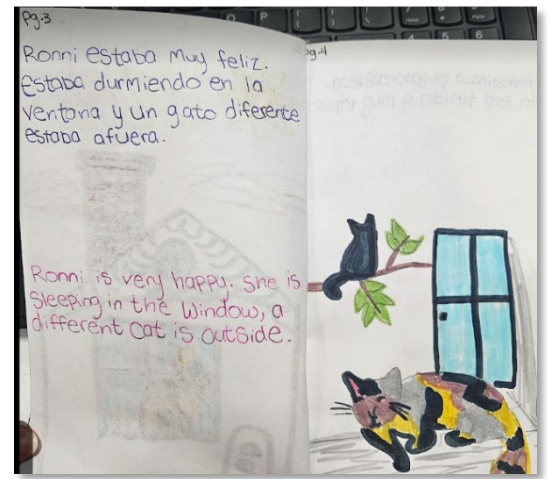 Pg.3
Ronni estaba muy feliz.
Estaba durmiendo en la
ventana y un gato diferente
estaba afuera.
Ronni is very happy. She is
sleeping in the window, a
different cat is outside.
pg.4